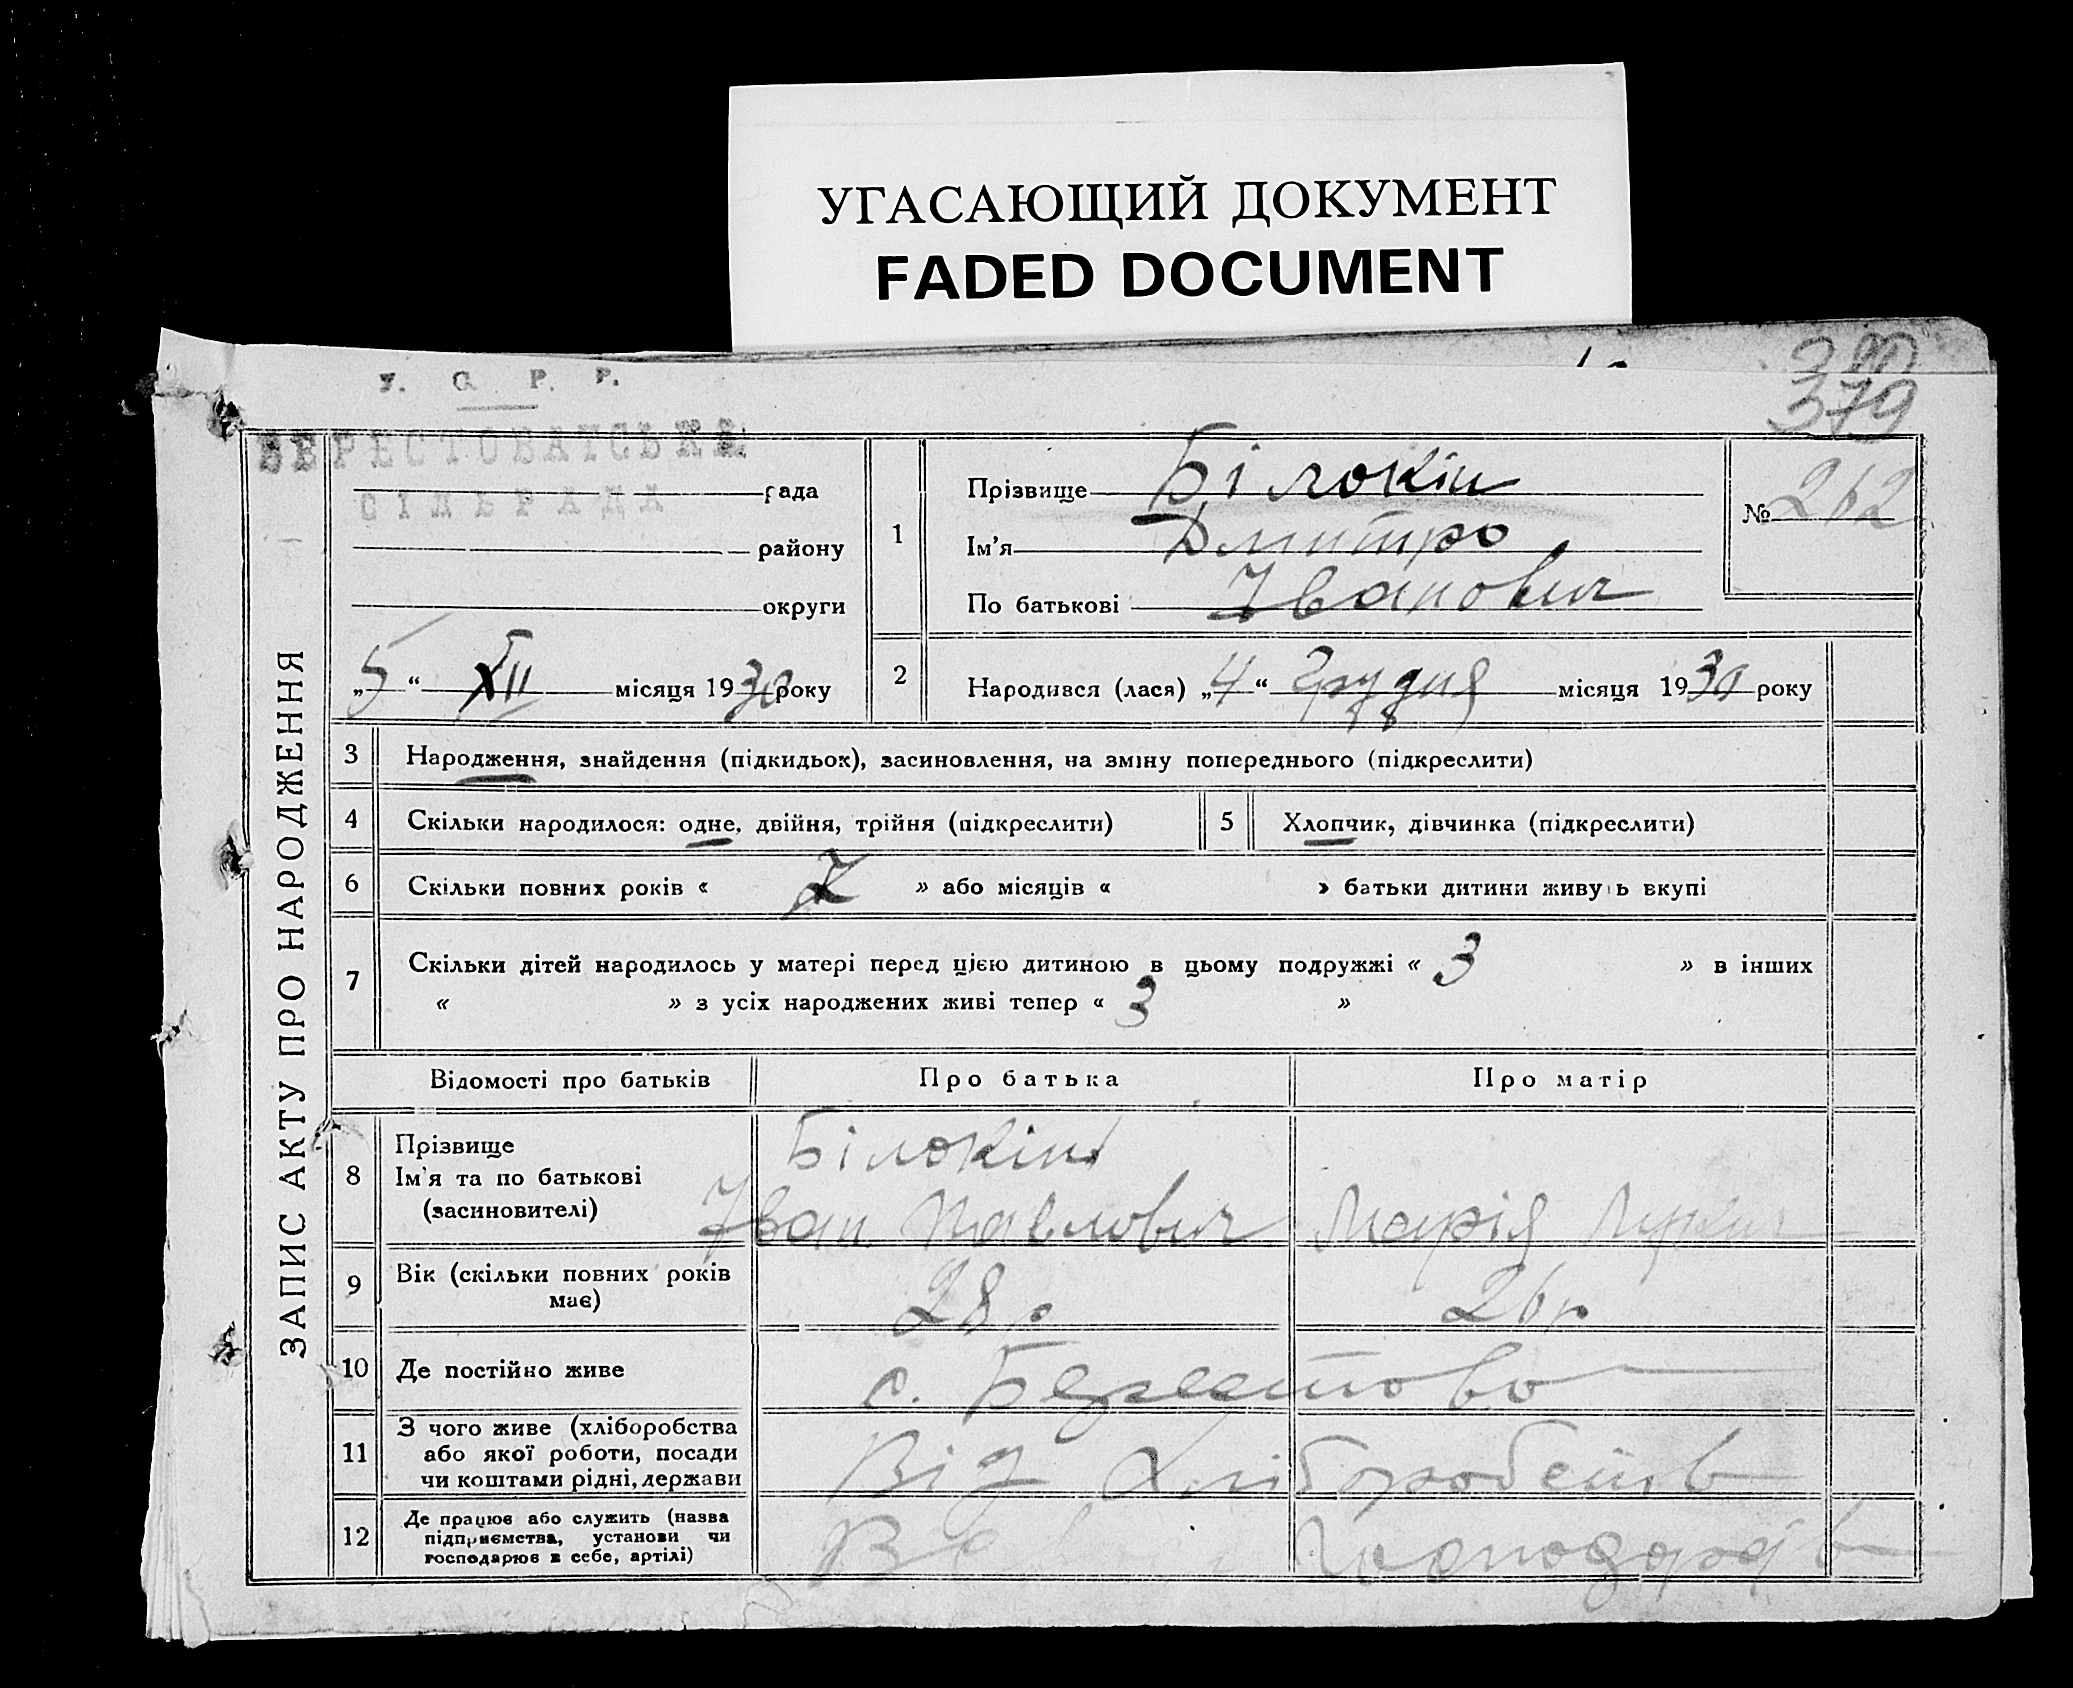 УГАСАЮЩИЙ ДОКУМЕНТ
FADED DOCUMENT
379
У. С. Р. Р.
БЕРЕСТОВАТСЬКА
СІЛЬРАДА
рада
району
округи
„5“ XII місяця 1930 року
ЗАПИС АКТУ ПРО НАРОДЖЕННЯ
1
Прізвище Білокінь
Ім'я Дмитро
По батькові Іванович
№ 262
2 Народився (лася) „4“ Грудня місяця 1930 року
3 Народження, знайдення (підкидьок), засиновлення, на зміну попереднього (підкреслити)
4 Скільки народилося: одне, двійня, трійня (підкреслити) 5 Хлопчик, дівчинка (підкреслити)
6 Скільки повних років « » або місяців « » батьки дитини живуть вкупі
7 Скільки дітей народилось у матері перед цією дитиною в цьому подружжі « 3 » в інших
« » з усіх народжених живі тепер « 3 »
Відомості про батьків Про батька Про матір
8 Прізвище Білокінь
Ім'я та по батькові
(засиновителі) Іван Павлович Марія
9 Вік (скільки повних років має) 28 р. 26 р
10 Де постійно живе с. Берестово
11 З чого живе (хліборобства
або якої роботи, посади
чи коштами рідні, держави Від Хлі
12 Де працює або служить (назва
підприємства, установи чи
господарює в себе, артілі)